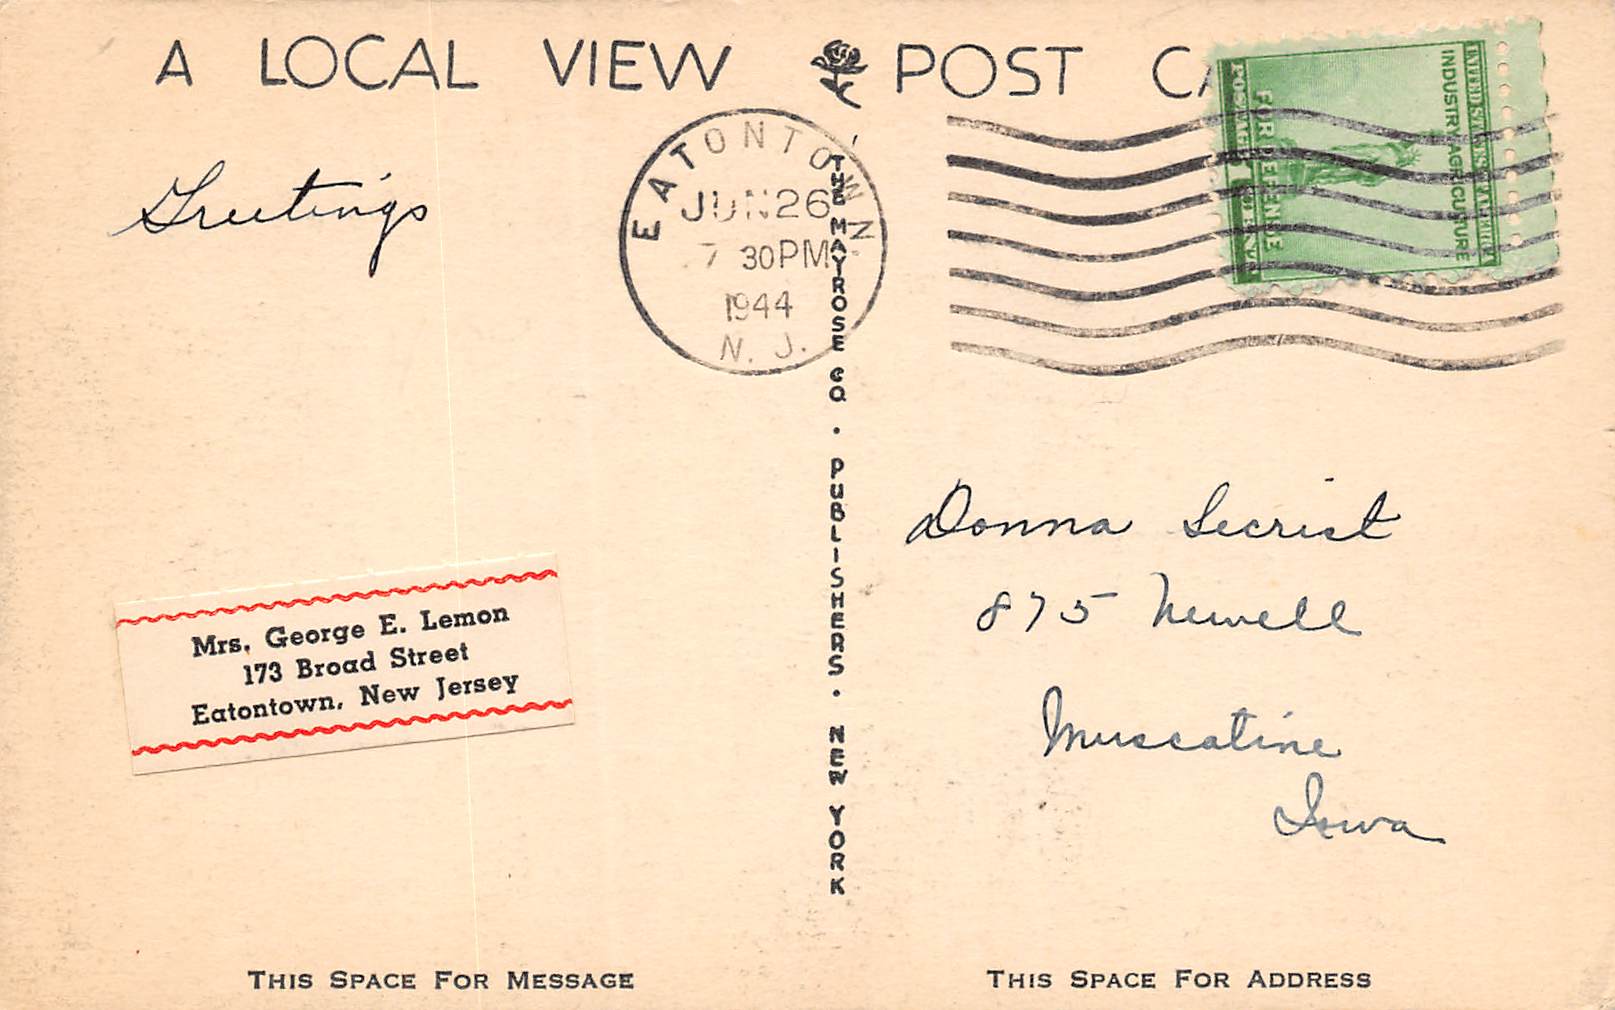 A LOCAL VIEW POST CA
Greetings
EATONTOWN
JUN 26
7 30PM
1944
N. J.
UNITED STATES OF AMERICA
INDUSTRY AGRICULTURE
FOR DEFENSE
POSTAGE 1 CENT
THE MAYROSE CO. PUBLISHERS. NEW YORK
Mrs. George E. Lemon
173 Broad Street
Eatontown, New Jersey
Donna Secrist
875 Newell
Muscatine
Iowa
THIS SPACE FOR MESSAGE
THIS SPACE FOR ADDRESS